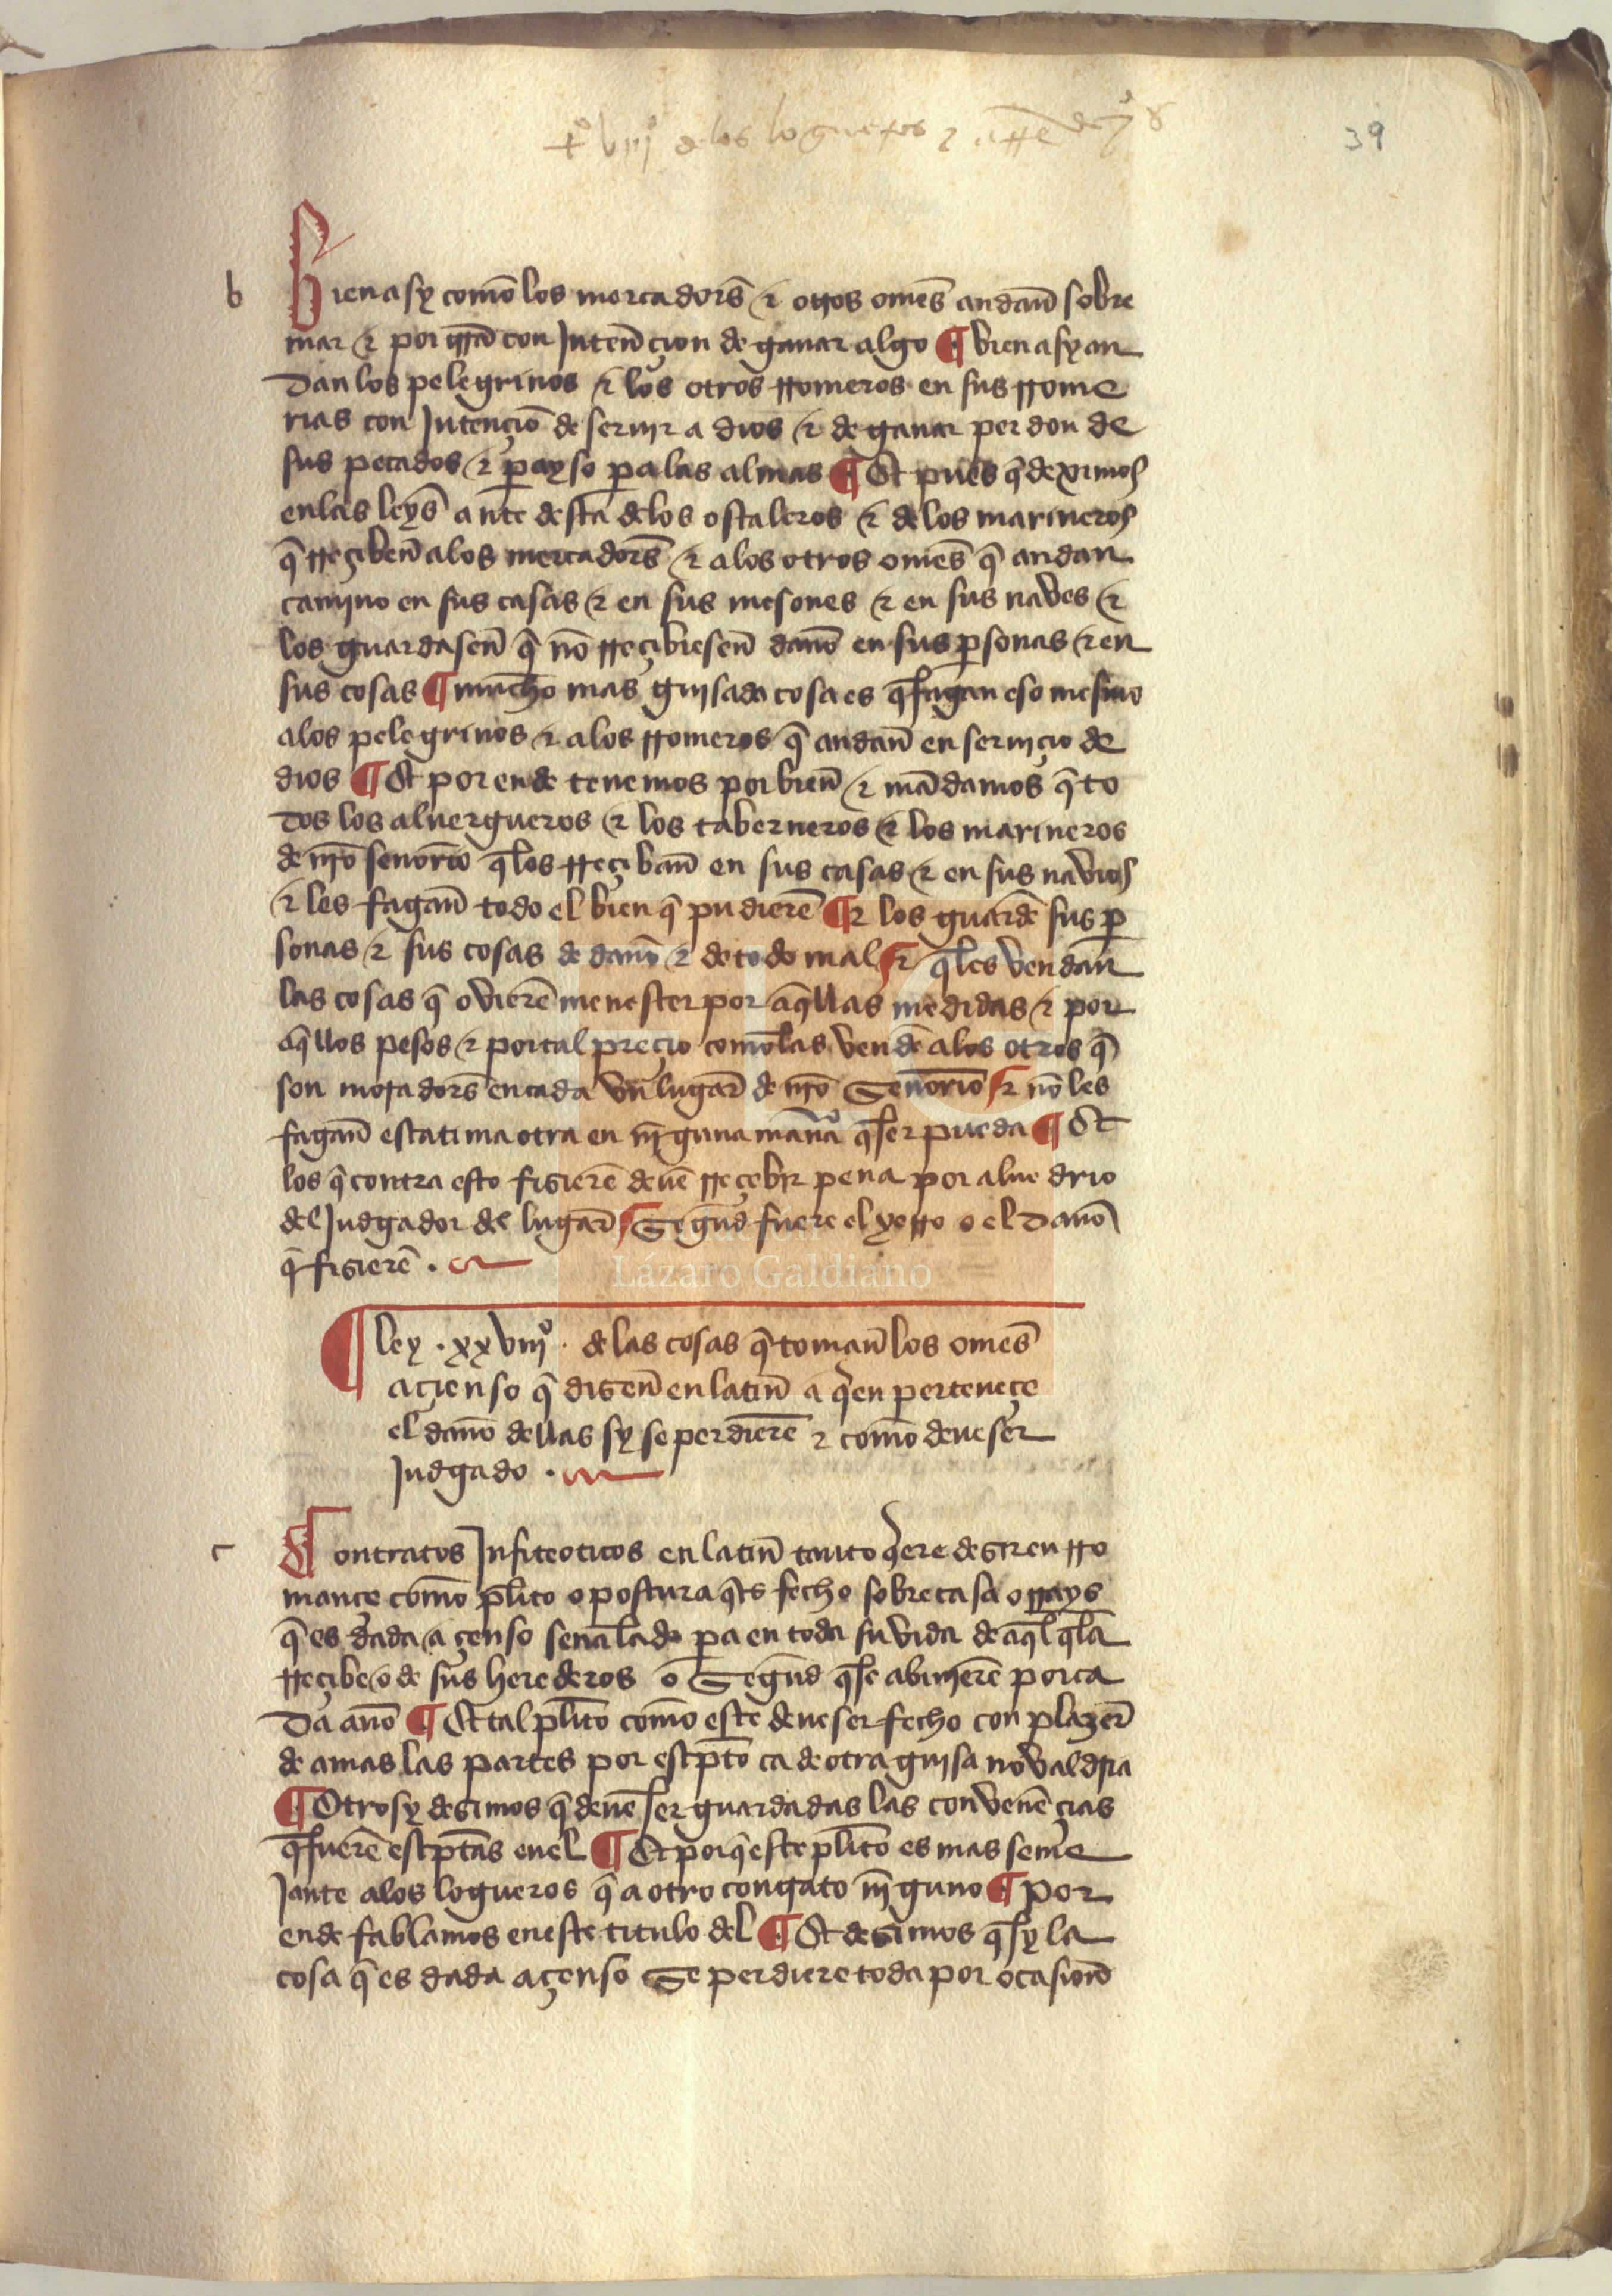 tº viijº de los logueros ⁊
39
b
Bien asy como los mercadors̃ ⁊ otros omẽs andañ sobre
mar ⁊ por trr̃a con Intençion de ganar algo ¶ bien asy an
dan los pelegrinos ⁊ los otros rromeros en sus rrome
rias con Intençiõ de seruir a dios ⁊ de ganar perdon de
sus pecados ⁊ p̃ayso p̃a las almas ¶ Et pues q̃ deximos
en las leys̃ ante desta de los ostaleros ⁊ de los marineros
q̃ rreçibeñ a los mercadors̃ ⁊ a los otros omẽs q̃ andan
camjno en sus casas ⁊ en sus mesones ⁊ en sus naves ⁊
los guardaseñ q̃ nõ rreçibieseñ dano en sus p̃sonas ⁊ en
sus cosas ¶ mucho mas guisada cosa es q̃ fagan eso mesmo
a los pelegrinos ⁊ a los rromeros q̃ andañ en seruiçio de
dios ¶ Et por ende tenemos por bieñ ⁊ mãdamos q̃ to
dos los aluergueros ⁊ los taberneros ⁊ los marineros
de nr̃o senorio q̃ los rreçibañ en sus casas ⁊ en sus navios
⁊ les fagañ todo el bien q̃ pudierẽ ¶ ⁊ los guardẽ sus p̃
sonas ⁊ sus cosas de dano ⁊ de todo mal ⁊ q̃ les vendañ
las cosas q̃ ovierẽ menester por aq̃llas medidas ⁊ por
aq̃llos pesos ⁊ por tal preçio como las vendẽ a los otros q̃
son moradors̃ en cada vn lugar̃ de nr̃o Senorio ⁊ nõ les
fagañ escatima otra en nj̃guna mañaª q̃ ser pueda ¶ Et
los q̃ contra esto fisierẽ deuẽ rreçebir pena por aluedrio
del Judgador del lugar̃ Segund fuere el yerro o el dano
q̃ fisierẽ .
¶ ley . xxviijº . de las cosas q̃ tomañ los omẽs
a çienso q̃ diseñ en latiñ a q̃en perteneçe
el dano dellas sy se perdierẽ ⁊ como deue ser
Judgado .
c
Contratos Infiteoticos en latiñ tanto q̃ere desir en rro
mançe como pl̃ito o postura q̃ es fecho sobre casa o rrays
q̃ es dada a çenso senalado p̃a en toda su vida de aq̃l q̃ la
rreçibe o de sus herederos o Segund q̃ se abinjerẽ por ca
da ano ¶ Et tal pl̃ito como este deue ser fecho con plazer̃
de amas las partes por escp̃to ca de otra guisa no valdria
¶ Otrosy desimos q̃ deuẽ ser guardadas las convenẽçias
q̃ fuerẽ escp̃tas en el ¶ Et porq̃ este pl̃ito es mas seme
Jante a los logueros q̃ a otro contrato nj̃guno ¶ por
ende fablamos en este titulo del ¶ Et desimos q̃ sy la
cosa q̃ es dada a çenso Se perdiere toda por ocasion̄
Lázaro Galdiano